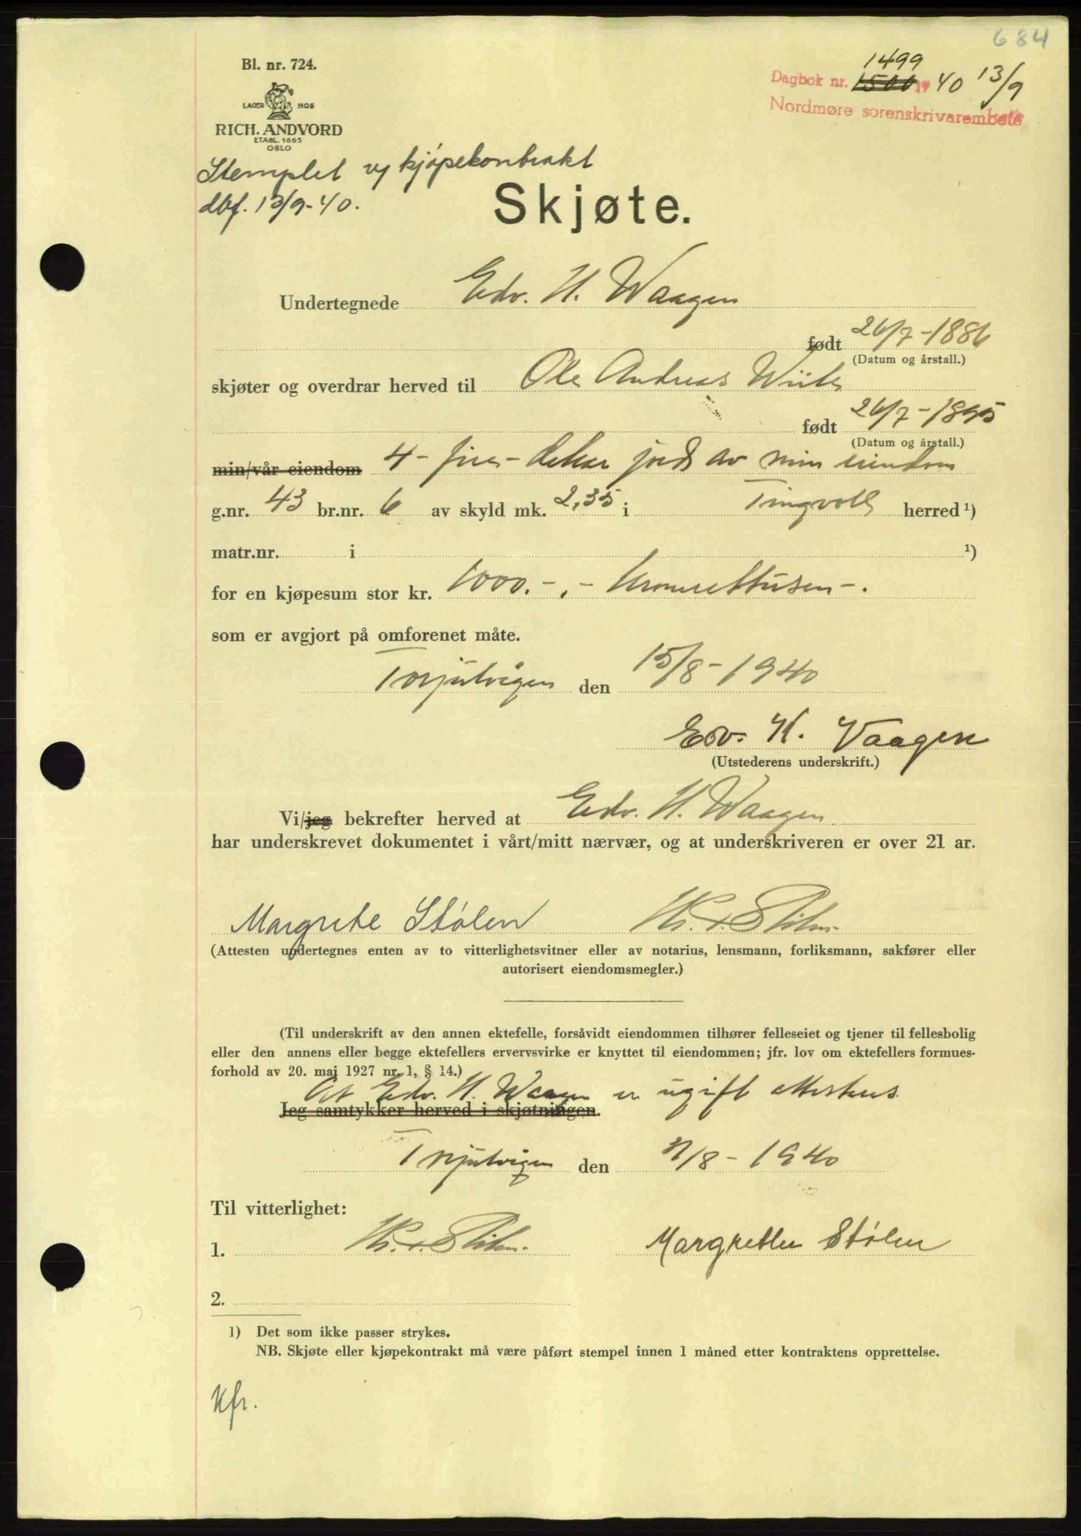 684
Bl. nr. 724.
LAGER HOS
RICH. ANDVORD
ETABL. 1865
OSLO
1499
Dagbok nr. 1500 19 40 13/9
Nordmøre sorenskrivarembete
Stemplet v/ kjøpekontrakt
dbf. 13/9-40.
Skjøte.
Undertegnede Edv. H. Waagen
født 26/7-1886
(Datum og årstall.)
skjøter og overdrar herved til Ole Andreas Wiik
født 26/7-1895
(Datum og årstall.)
min/vår eiendom 4- fire- dekar jord av min eiendom
g.nr. 43 br.nr. 6 av skyld mk. 2,35 i Tingvoll herred ¹)
matr.nr. i ¹)
for en kjøpesum stor kr. 1000.-,- kroneettusen-.
som er avgjort på omforenet måte.
Torjulvågen den 15/8-1940
Edv. H. Vaagen
(Utstederens underskrift.)
Vi/jeg bekrefter herved at Edv. H. Waagen
har underskrevet dokumentet i vårt/mitt nærvær, og at underskriveren er over 21 år.
Margrete Stølen
(Attesten undertegnes enten av to vitterlighetsvitner eller av notarius, lensmann, forliksmann, sakfører eller
autorisert eiendomsmegler.)
(Til underskrift av den annen ektefelle, forsåvidt eiendommen tilhører felleseiet og tjener til fellesbolig
eller den annens eller begge ektefellers ervervsvirke er knyttet til eiendommen; jfr. lov om ektefellers formues-
forhold av 20. mai 1927 nr. 1, § 14.)
At Edv. H. Waagen er ugift attesteres
Jeg samtykker herved i skjøtningen.
Torjulvågen den /8-1940
Til vitterlighet:
1. Margrethe Stølen
2.
1) Det som ikke passer strykes.
NB. Skjøte eller kjøpekontrakt må være påført stempel innen 1 måned etter kontraktens opprettelse.
Kfr.